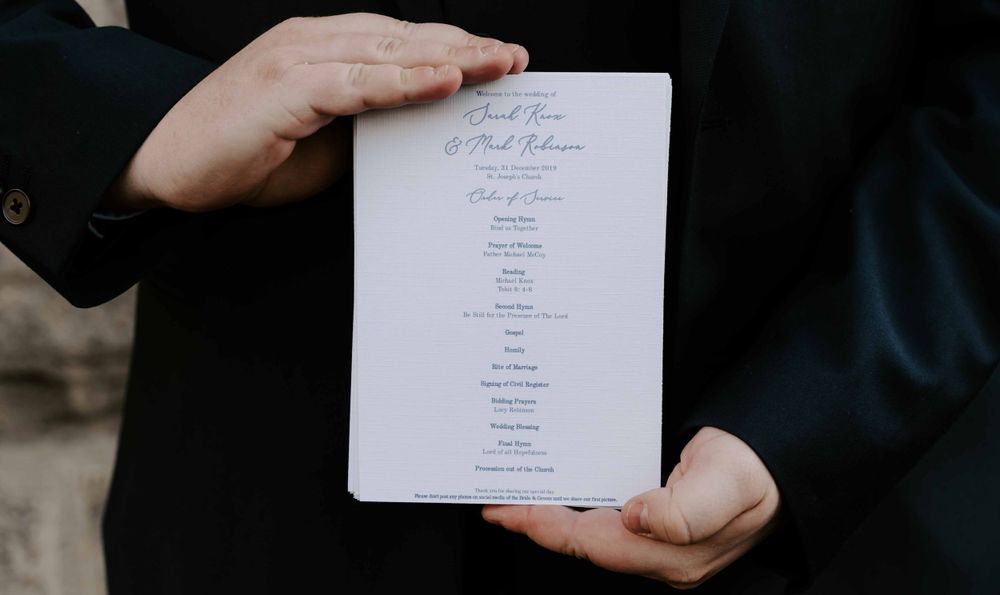 Welcome to the wedding of
Sarah Knox
& Mark Robinson
Tuesday, 31 December 2019
St. Joseph's Church
Order of Service
Opening Hymn
Bind us Together
Prayer of Welcome
Father Michael McCoy
Reading
Michael Knox
Tobit 8: 4-8
Second Hymn
Be Still for the Presence of The Lord
Gospel
Homily
Rite of Marriage
Signing of Civil Register
Bidding Prayers
Lucy Robinson
Wedding Blessing
Final Hymn
Lord of all Hopefulness
Procession out of the Church
Thank you for sharing our special day.
Please don't post any photos on social media of the Bride & Groom until we share our first picture.